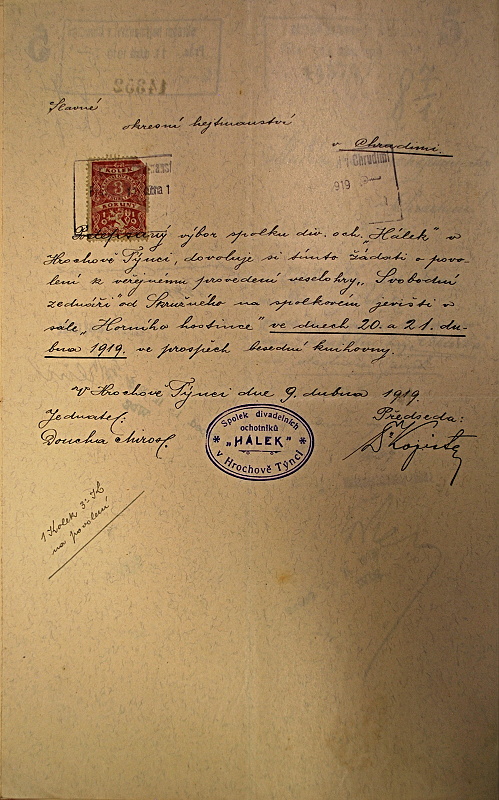 Slavné
okresní hejtmanství
v Chrudimi.
KOLEK
3
KORUNY
v Chrudimi
919
Podepsaný výbor spolku div. och. „Hálek" v
Hrochově Týnci, dovoluje si tímto žádati o povo-
lení k veřejnému provedení veselohry „Svobodní
zednáři" od Skružného na spolkovém jevišti v
sále „Horního hostince" ve dnech 20. a 21. du-
bna 1919. ve prospěch besední knihovny.
V Hrochově Týnci dne 9. dubna 1919.
Jednatel: Předseda:
Doucha Mirosl.
Spolek divadelních
ochotníků
„HÁLEK"
v Hrochově Týnci
1 Kolek 3 K
na povolení
14352